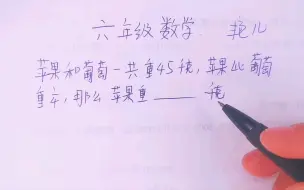 六年级数学
苹果和葡萄一共重45千克,苹果比葡萄
重,那么苹果重____千克